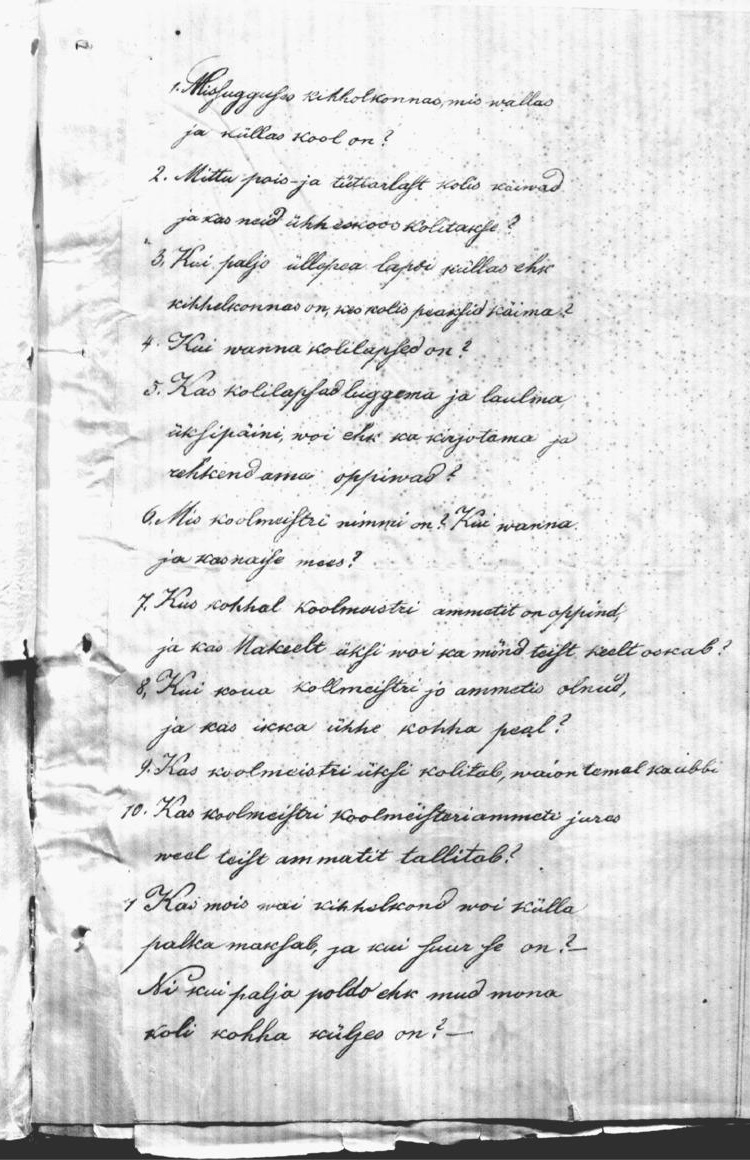 1. Missuggusses kihholkonnas, mis wallas
ja küllas kool on?
2. Mittu pois- ja tüttarlast kolis käiwad
ja kas neid ühheskoos kolitakse?
3. Kui paljo üllepea lapsi küllas ehk
kihhelkonnas on, kes kolis peaksid käima?
4. Kui wanna kolilapsed on?
5. Kas kolilapsed luggema ja laulma
üksipäini, woi ehk ka kirjotama ja
rehkendama oppiwad?
6. Mis koolmeistri nimmi on? Kui wanna
ja kas naise mees?
7. Kus kohhal koolmeistri ammetit on oppind,
ja kas Makeelt üksi woi ka mönd teist keelt oskab?
8, Kui koua kollmeistri jo ammetis olnud,
ja kas ikka ühhe kohha peal?
9. Kas koolmeistri üksi kolitab, wai on temal ka übbi
10. Kas koolmeistri koolmeisteriammeti jures
weel teist ammatit tallitab?
1 Kas mois wai kihhelkond woi külla
palka maksab, ja kui suur se on? —
Ni kui palja poldo ehk mud mona
koli kohha küljes on? —